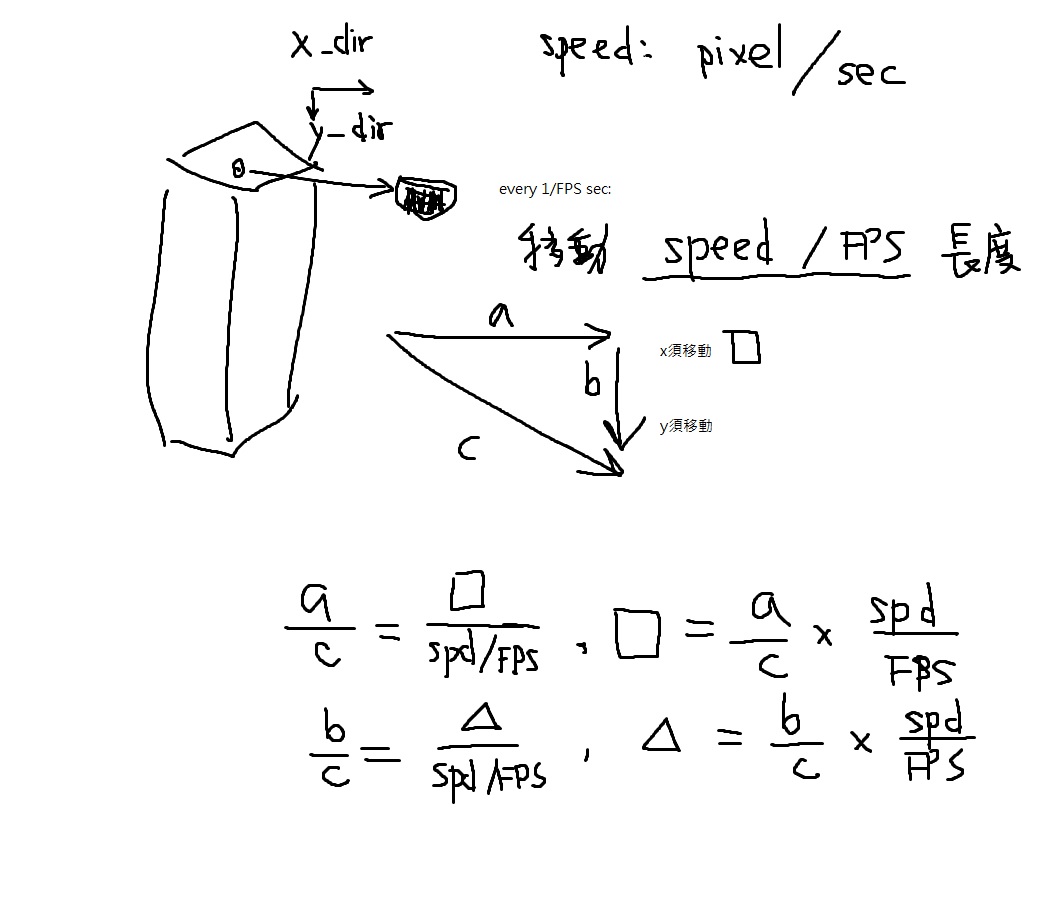 x_dir
speed: pixel/sec
y_dir
every 1/FPS sec:
移動 speed / FPS 長度
a
x須移動 □
b
y須移動
c
a/c = □/(spd/FPS) , □ = a/c × spd/FPS
b/c = △/(spd/FPS) , △ = b/c × spd/FPS